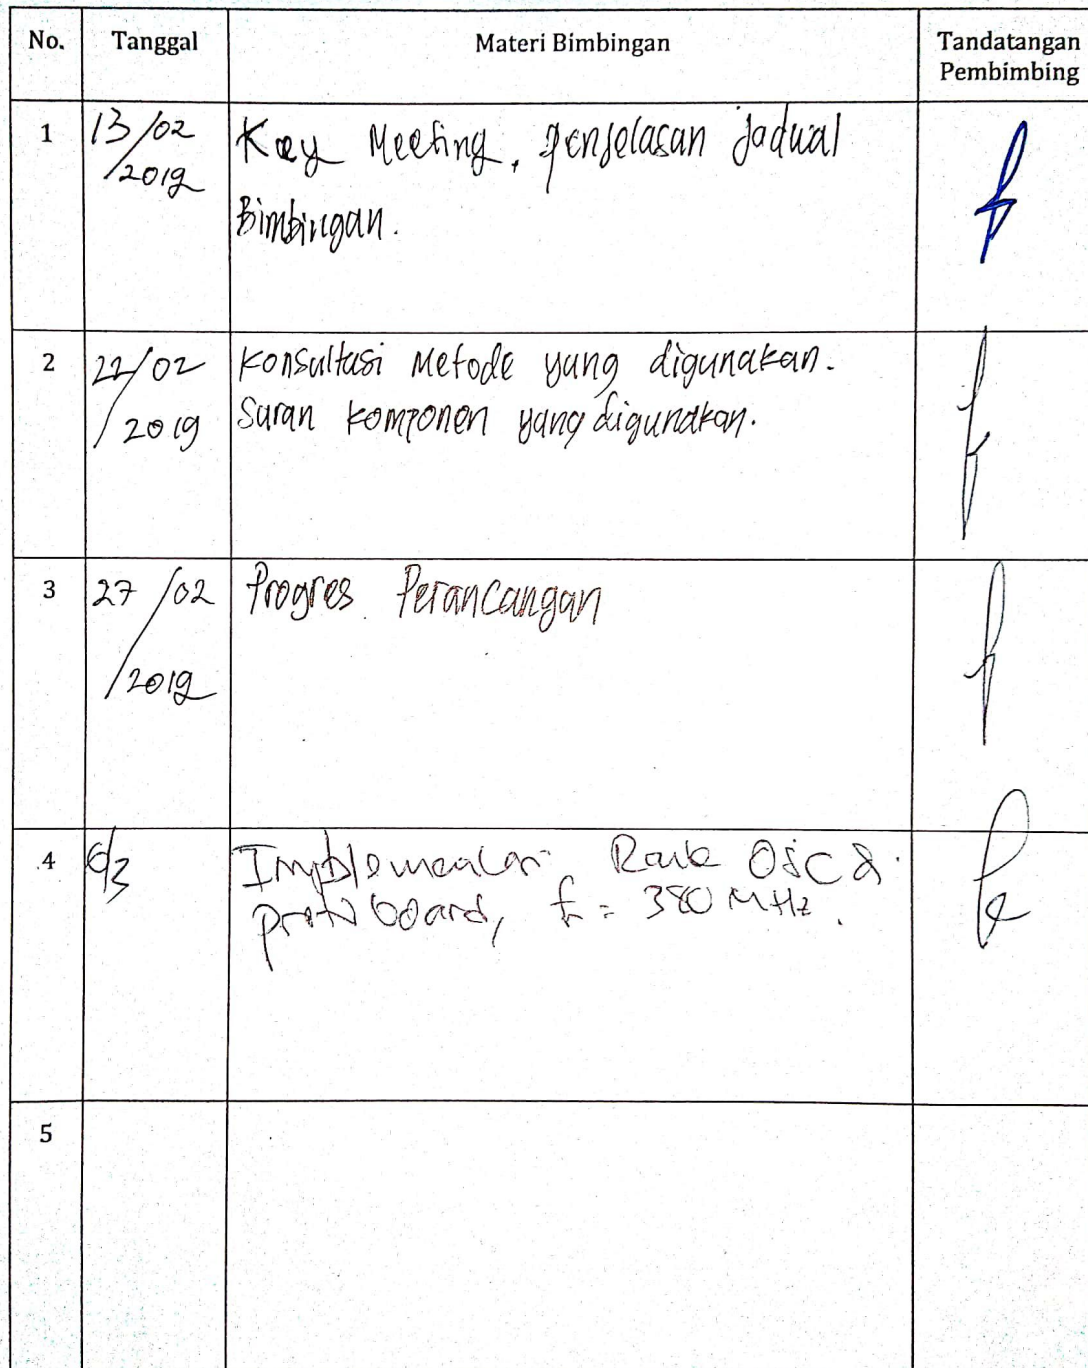 No. Tanggal Materi Bimbingan Tandatangan
Pembimbing
1 13/02 Key Meeting, penjelasan jadual
/2019
Bimbingan.
2 22/02 Konsultasi Metode yang digunakan.
/2019 Saran komponen yang digunakan.
3 27/02 Progres Perancangan
/2019
4 6/3 Implementasi Osc &
protoboard, f = 380 MHz.
5